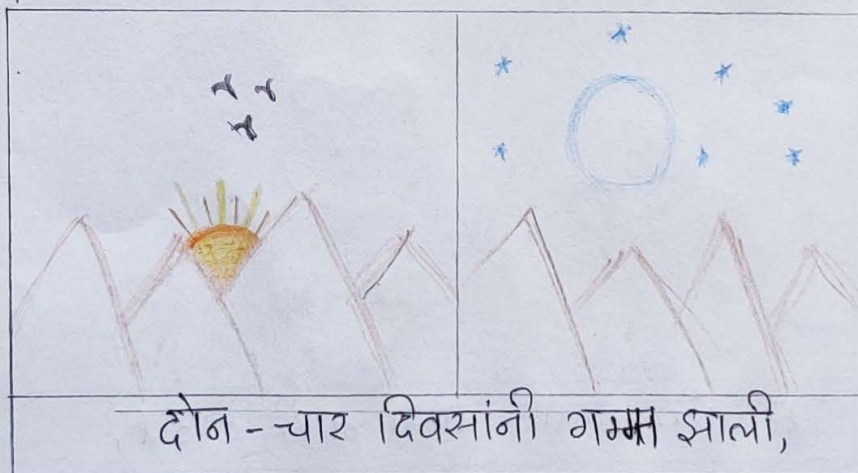 दोन - चार दिवसांनी गम्मत झाली,